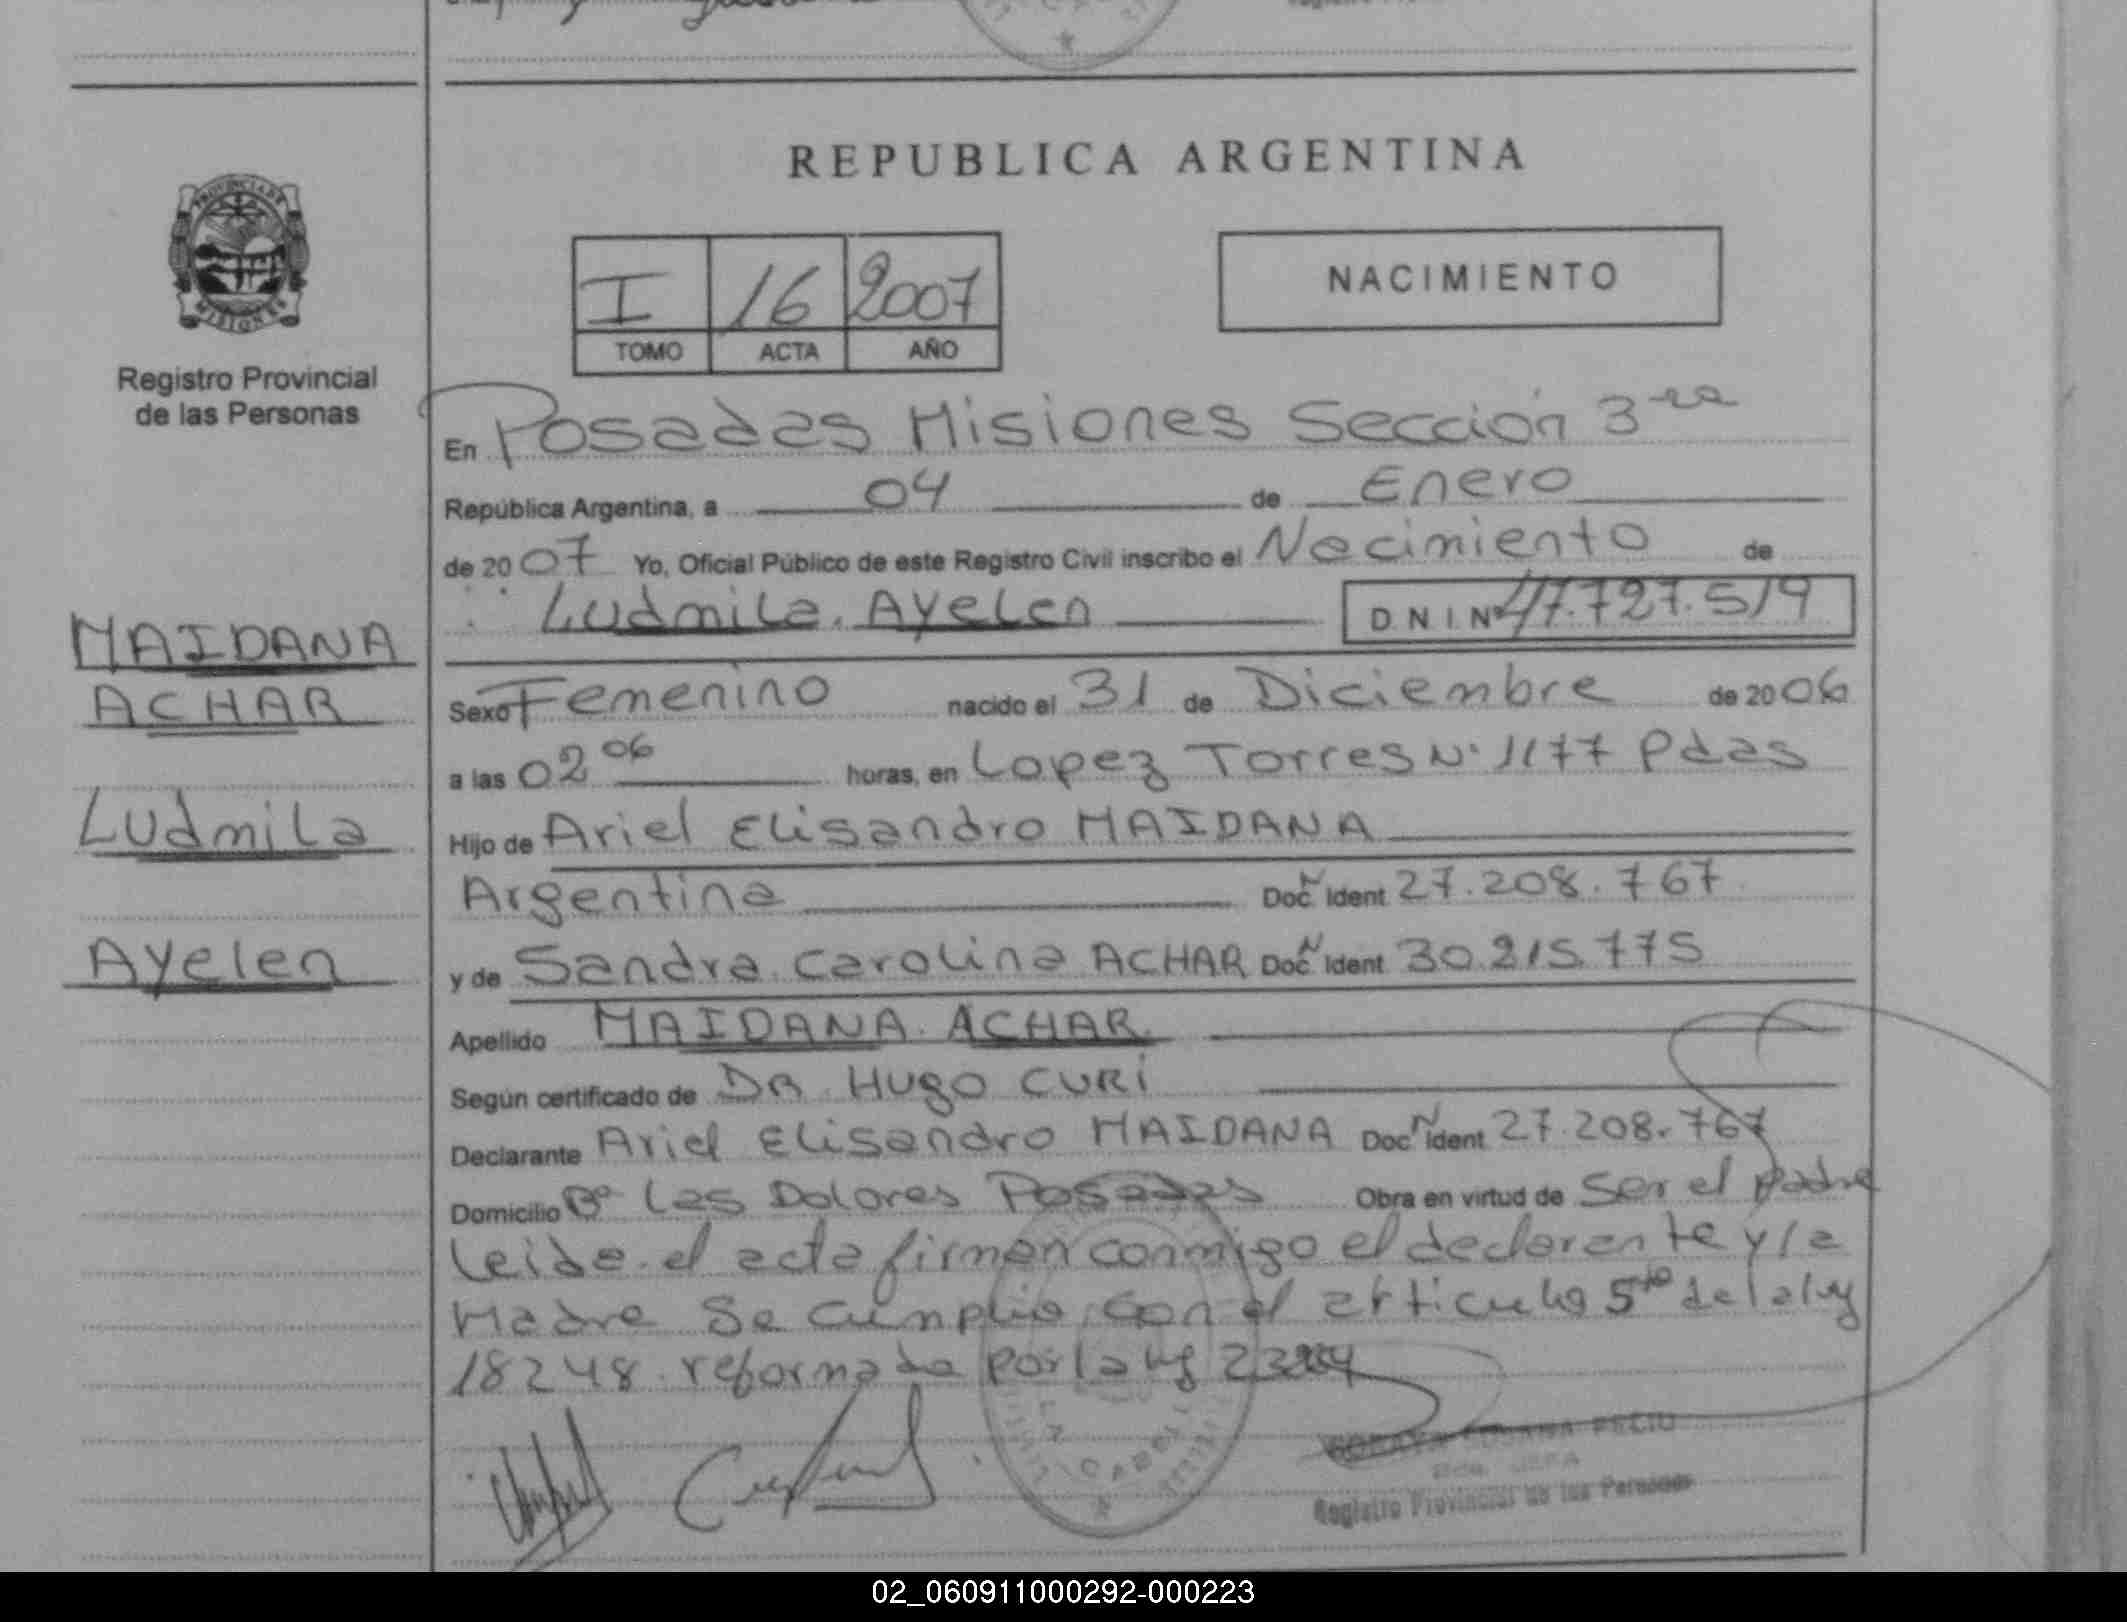 REPUBLICA ARGENTINA
PROVINCIA DE
MISIONES
Registro Provincial
de las Personas
I 16 2007
TOMO ACTA AÑO
NACIMIENTO
En Posadas Misiones Sección 3ra
República Argentina, a 04 de Enero
de 2007 Yo, Oficial Público de este Registro Civil inscribo el Nacimiento de
Ludmila Ayelen D N I N° 47.727.519
MAIDANA
ACHAR
Ludmila
Ayelen
Sexo Femenino nacido el 31 de Diciembre de 2006
a las 02 06 horas, en Lopez Torres N° 1177 Pdas
Hijo de Ariel Elisandro MAIDANA
Argentina Doc N Ident 27.208.767
y de Sandra Carolina ACHAR Doc N Ident 30.215.775
Apellido MAIDANA ACHAR
Según certificado de DR. HUgo CURi
Declarante Ariel Elisandro MAIDANA Doc N Ident 27.208.767
Domicilio B° Las Dolores Posadas Obra en virtud de Ser el padre
Leida el acta firman conmigo el declarante y la
Madre Se cumplio con el articulo 5to de la ley
18248 reformada por la ley
Registro Provincial de las Personas
02_060911000292-000223